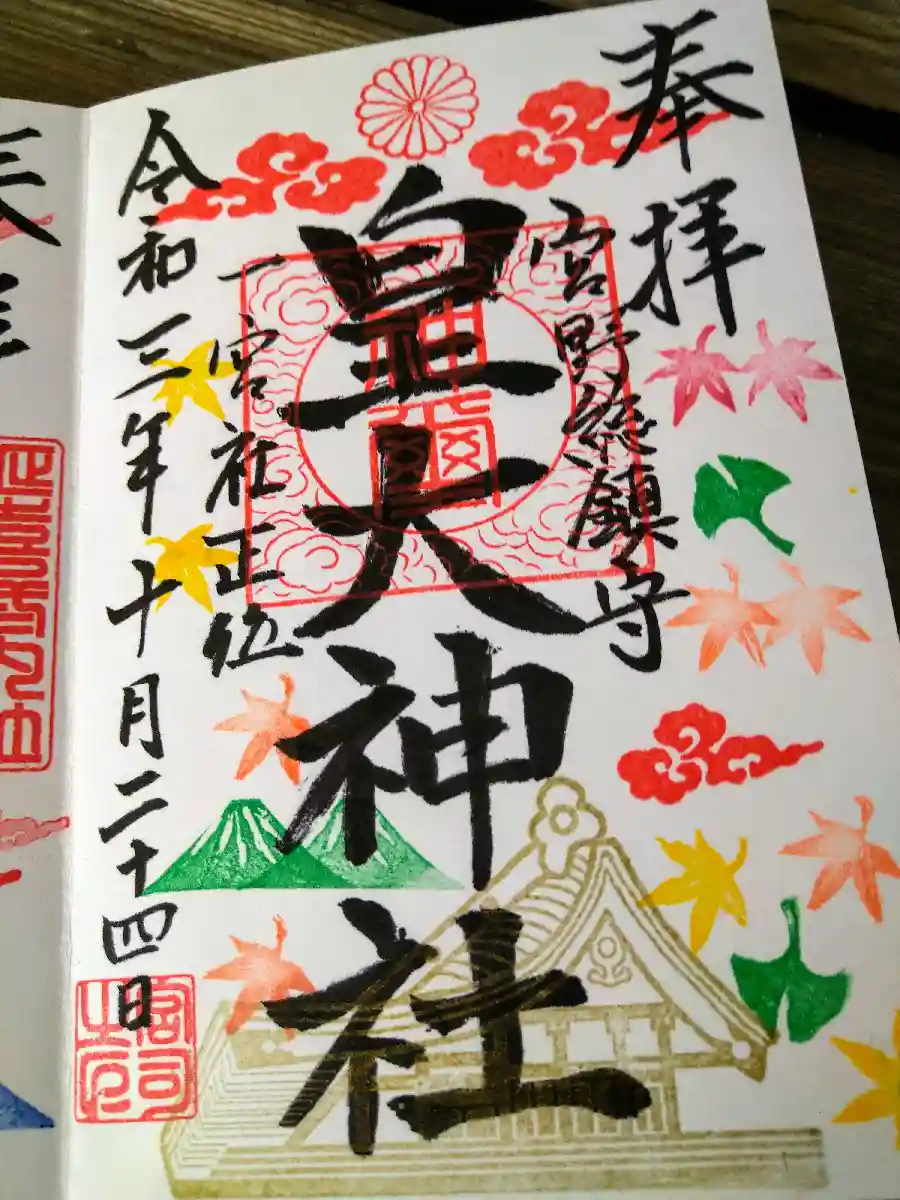 奉拝
宮野総鎮守
皇大神社
一宮社正位
令和三年十月二十四日
宮司
之印